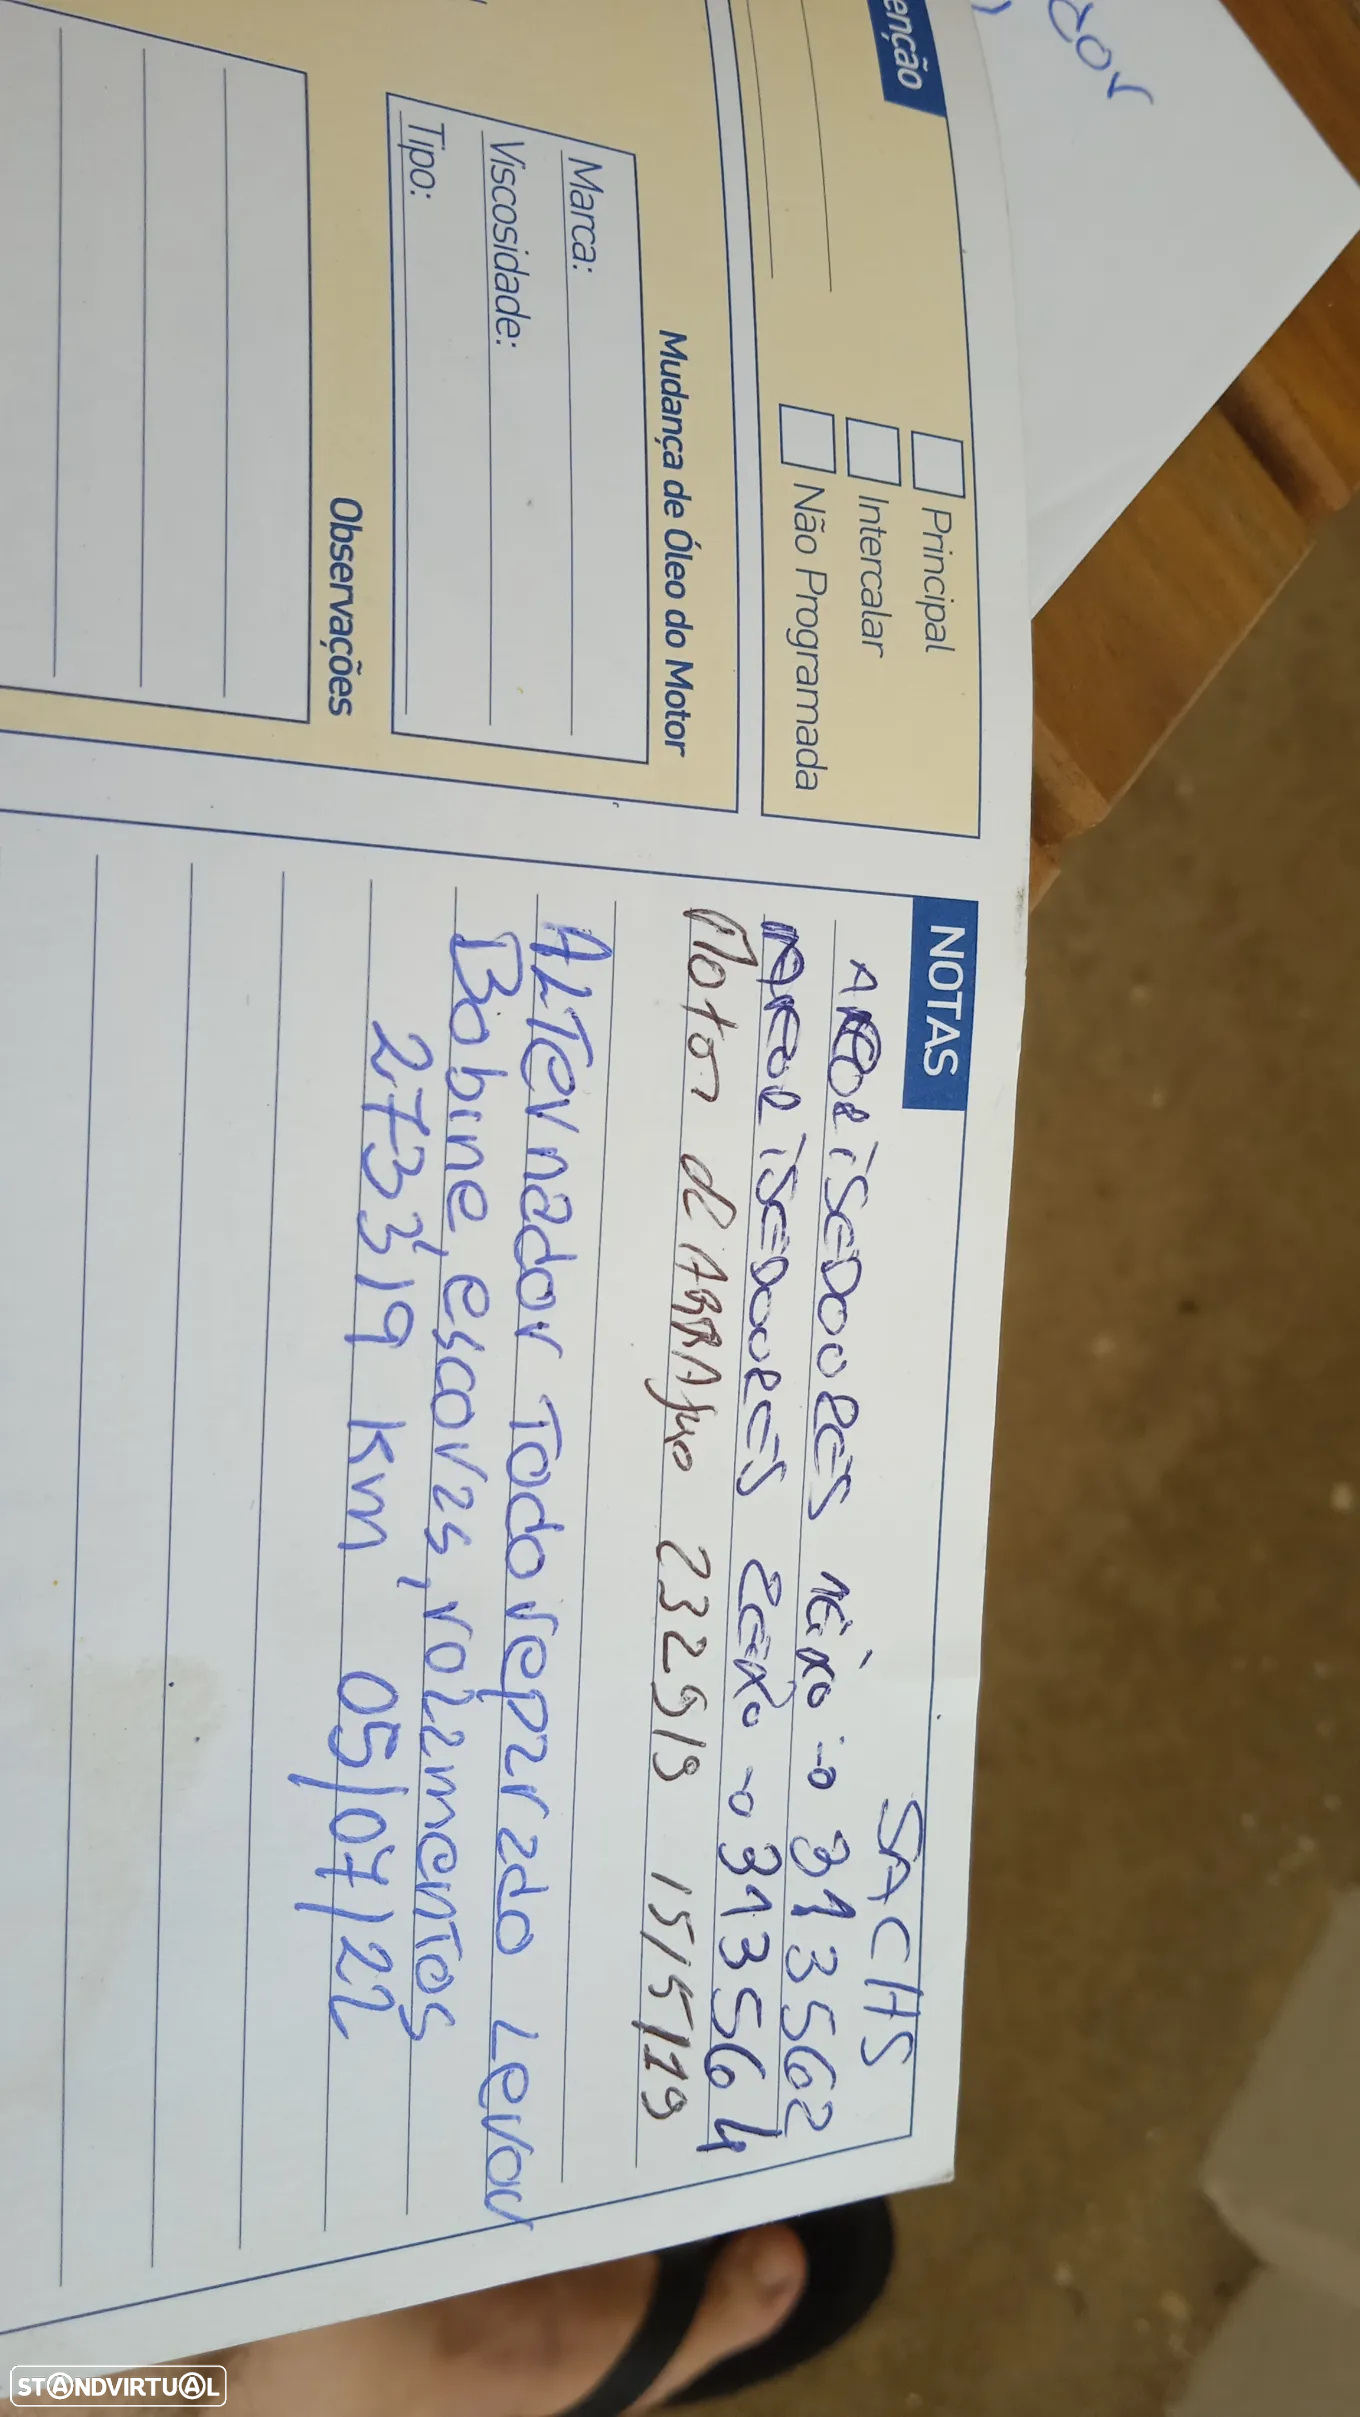 enção
Principal
Intercalar
Não Programada
Mudança de Óleo do Motor
Marca:
Viscosidade:
Tipo:
Observações
NOTAS
SACHS
313562
313564
Motor d'ARRAnque 232519 15/5/19
ALTernador Todo reparado Levou
Bobine, escovas, rolamentos
273319 km 05/07/22
STANDVIRTUAL